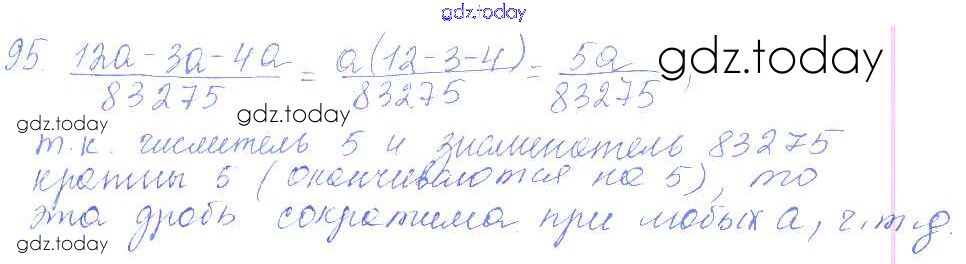 gdz.today
95. (12a-3a-4a)/83275 = a(12-3-4)/83275 = 5a/83275, gdz.today
gdz.today
gdz.today
т.к. числитель 5 и знаменатель 83275
кратны 5 (оканчиваются на 5), то
gdz.today
эта дробь сократима при любых a, ч.т.д.
gdz.today